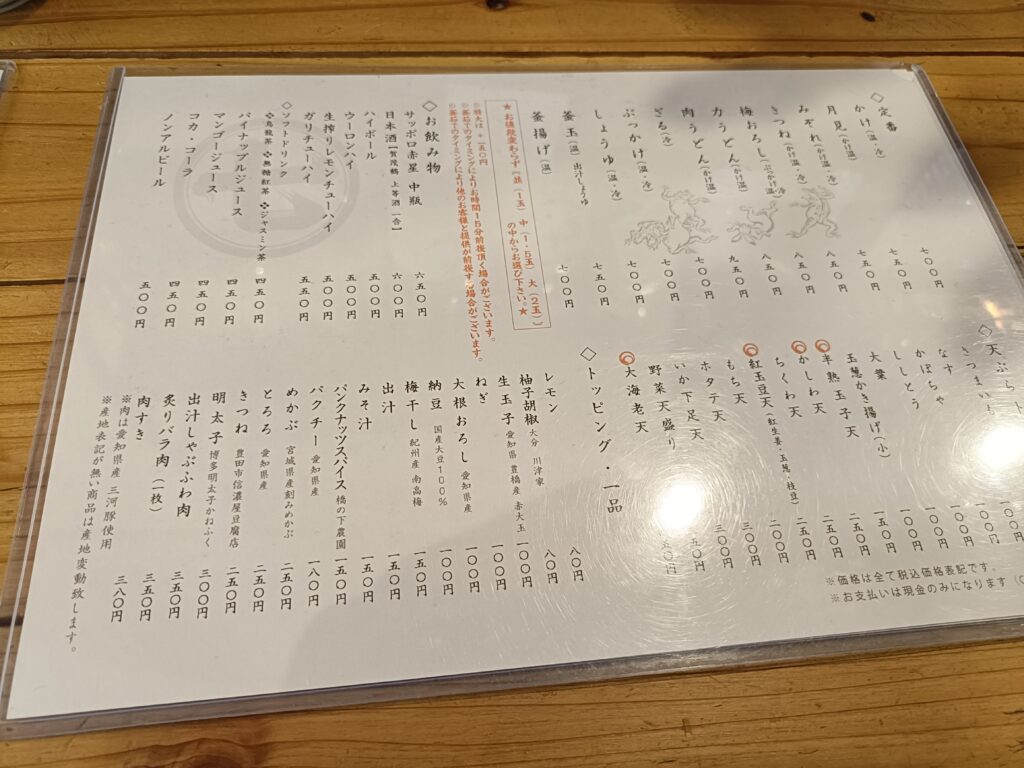 ◇定番
かけ（温・冷） 七〇〇円
月見（かけ温・冷） 七五〇円
みぞれ（かけ温・冷） 七五〇円
きつね（かけ温・冷） 八五〇円
梅おろし（ぶっかけ温・冷） 八五〇円
力うどん（かけ温） 八五〇円
肉うどん（かけ温） 九五〇円
ざる（冷） 七〇〇円
ぶっかけ（温・冷） 七〇〇円
しょうゆ（温・冷） 七〇〇円
釜玉（温）出汁しょうゆ 七五〇円
釜揚げ（温） 七〇〇円
★お値段変わらず『並（1玉）中（1・5玉）大（2玉）』
の中からお選び下さい。★
※特大は＋一五〇円
※釜茹でのタイミングによりお時間15分前後頂く場合がございます。
※釜茹でのタイミングにより他のお客様と提供が前後する場合がございます。
◇お飲み物
サッポロ赤星 中瓶 六五〇円
日本酒【賀茂鶴 上等酒 一合】 六〇〇円
ハイボール 五〇〇円
ウーロンハイ 五〇〇円
生搾りレモンチューハイ 五五〇円
ガリチューハイ 五五〇円
◇ソフトドリンク
✤烏龍茶 ✤無糖紅茶 ✤ジャスミン茶 四五〇円
パイナップルジュース 四五〇円
マンゴージュース 四五〇円
コカ・コーラ 四五〇円
ノンアルビール 五〇〇円
◇天ぷら
さつまいも 一〇〇円
なす 一〇〇円
かぼちゃ 一〇〇円
ししとう 一〇〇円
大葉 一〇〇円
玉葱かき揚げ（小） 一五〇円
半熟玉子天 二五〇円
かしわ天 二五〇円
ちくわ天 二五〇円
紅玉豆天（紅生姜・玉葱・枝豆） 二〇〇円
もち天 三〇〇円
ホタテ天 三〇〇円
いか下足天
野菜天盛り
大海老天
◇トッピング・一品
レモン 八〇円
柚子胡椒 大分 川津家 八〇円
生玉子 愛知県 豊橋産 赤大玉 一〇〇円
ねぎ 一〇〇円
大根おろし 愛知県産 一〇〇円
納豆 国産大豆100％ 一〇〇円
梅干し 紀州産 南高梅 一五〇円
出汁 一五〇円
みそ汁 一五〇円
パンクナッツスパイス 橋の下農園 一五〇円
パクチー 愛知県産 一八〇円
めかぶ 宮城県産刻みめかぶ 二五〇円
とろろ 愛知県産 二五〇円
きつね 豊田市信濃屋豆腐店 二五〇円
明太子 博多明太子かねふく 三〇〇円
出汁しゃぶふわ肉 三五〇円
炙りバラ肉（一枚） 三五〇円
肉すき 三八〇円
※肉は愛知県産 三河豚使用
※産地表記が無い商品は産地変動致します。
※価格は全て税込価格表記です。
※お支払いは現金のみになります